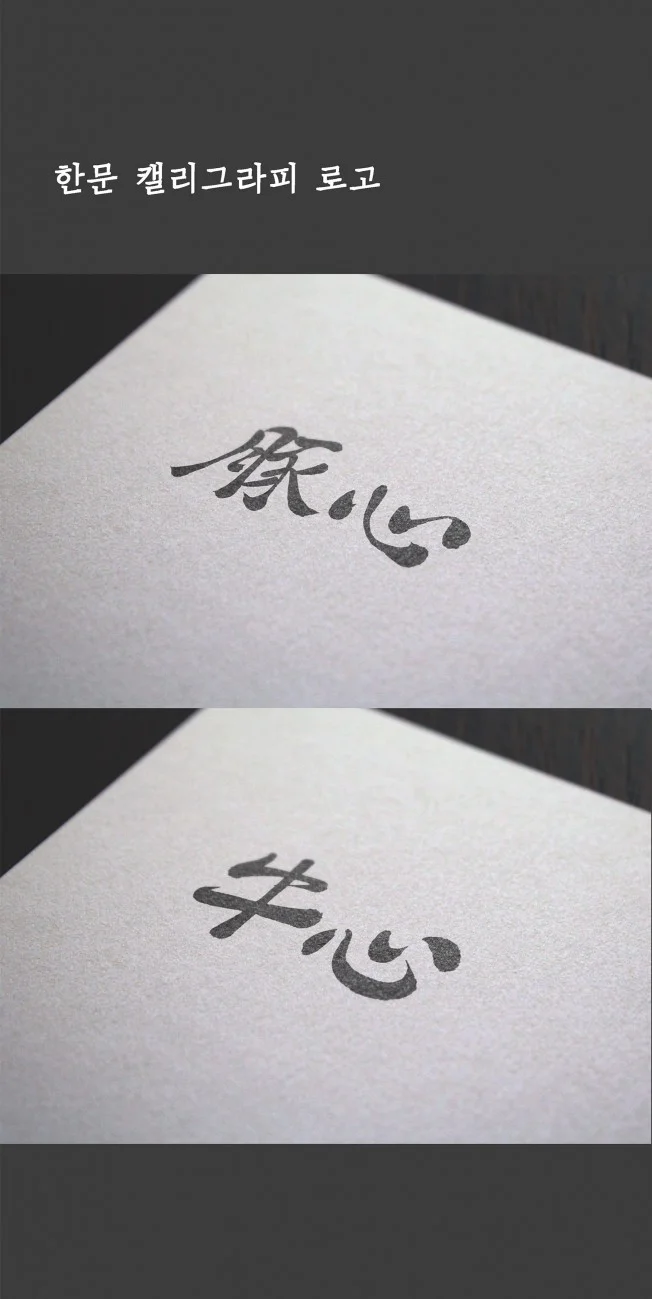 한문 캘리그라피 로고
豚心
牛心